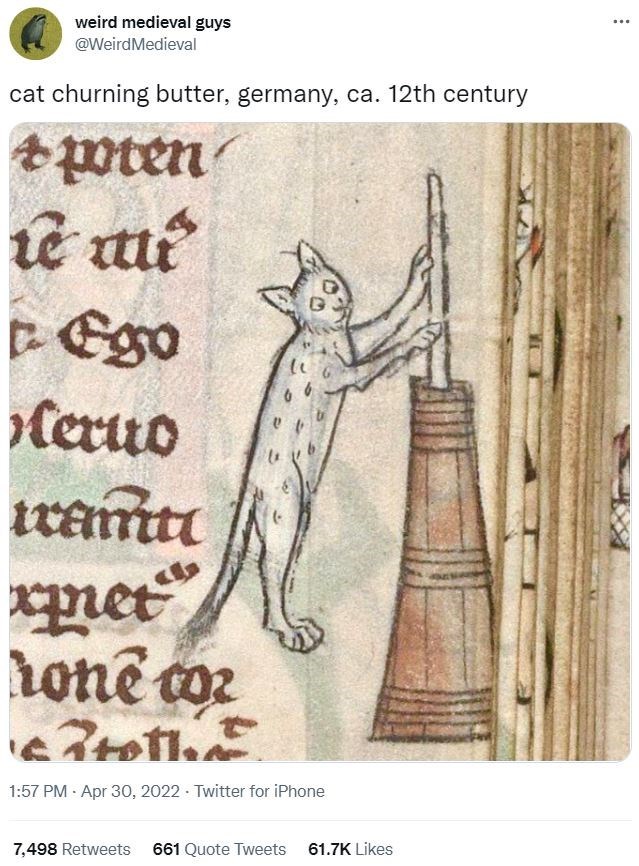 weird medieval guys
@WeirdMedieval
cat churning butter, germany, ca. 12th century
& poten
iē mi
Ego
seruo
expiet
ionē cor
1:57 PM · Apr 30, 2022 · Twitter for iPhone
7,498 Retweets 661 Quote Tweets 61.7K Likes